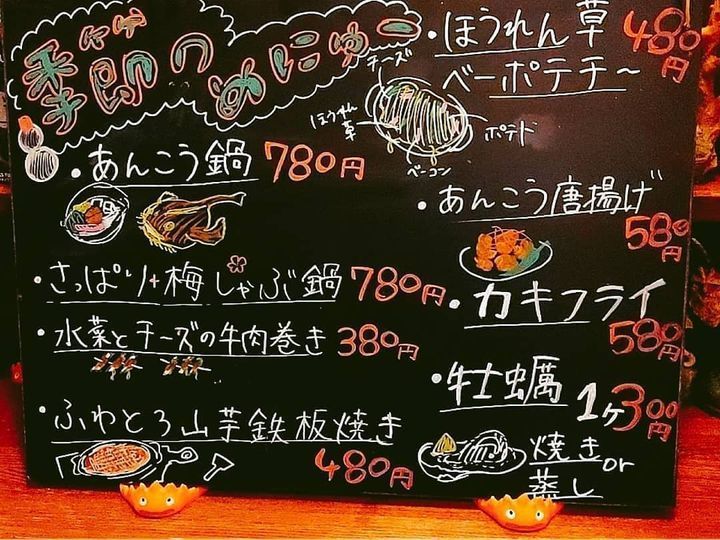 季節のめにゅー
・あんこう鍋 780円
・さっぱり梅しゃぶ鍋 780円
・水菜とチーズの牛肉巻き 380円
・ふわとろ山芋鉄板焼き
480円
・ほうれん草
ベーポテチ〜
480円
チーズ
ほうれん草
ポテト
ベーコン
・あんこう唐揚げ
580円
・カキフライ
580円
・牡蠣 1ヶ300円
焼き or
蒸し